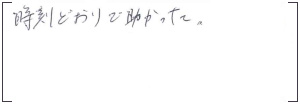 時刻どおりで助かった。